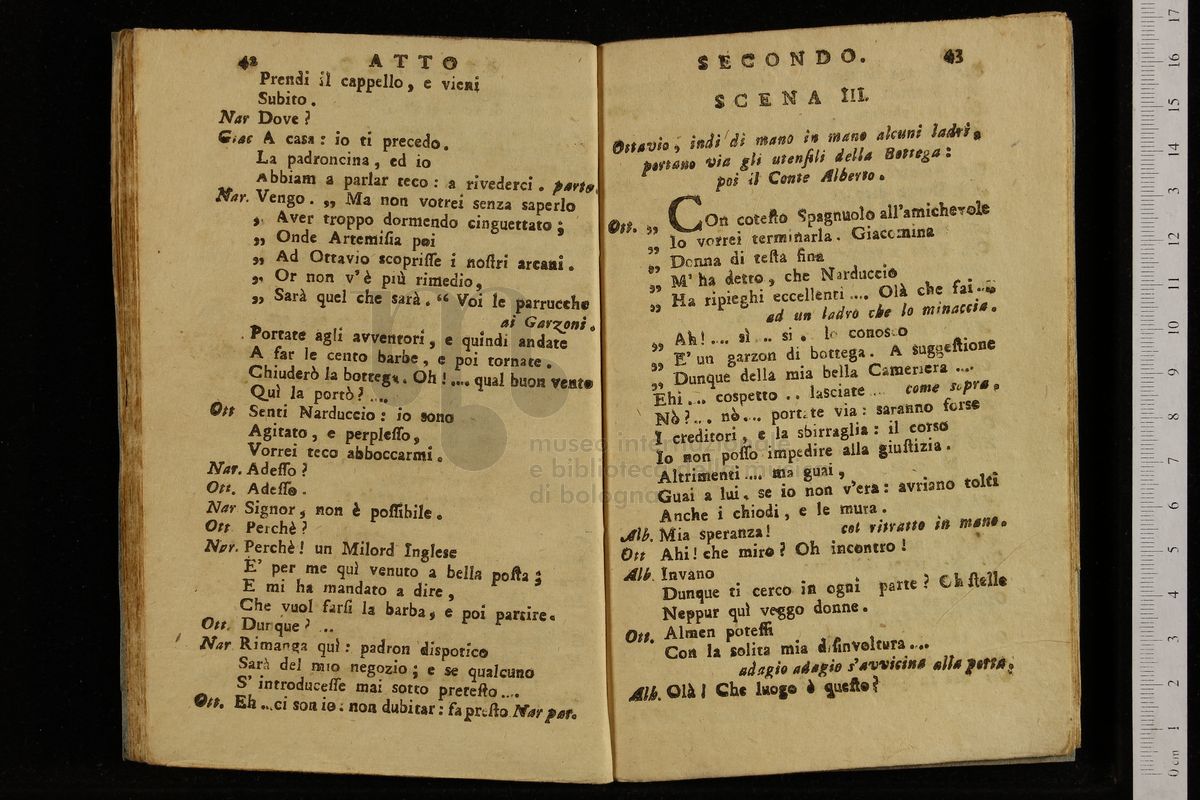 42 ATTO
Prendi il cappello, e vieni
Subito.
Nar Dove?
Giac A casa: io ti precedo.
La padroncina, ed io
Abbiam a parlar teco: a rivederci. parte.
Nar. Vengo. „ Ma non vorrei senza saperlo
„ Aver troppo dormendo cinguettato;
„ Onde Artemiſia poi
„ Ad Ottavio scopriſſe i noſtri arcani.
„ Or non v'è più rimedio,
„ Sarà quel che sarà. “ Voi le parrucche
ai Garzoni.
Portate agli avventori, e quindi andate
A far le cento barbe, e poi tornate.
Chiuderò la bottega. Oh!.... qual buon vento
Quì la portò?....
Ott Senti Narduccio: io sono
Agitato, e perpleſſo,
Vorrei teco abboccarmi.
Nar. Adeſſo?
Ott. Adeſſo.
Nar Signor, non è poſſibile.
Ott Perchè?
Nar. Perchè! un Milord Inglese
E' per me quì venuto a bella poſta;
E mi ha mandato a dire,
Che vuol farſi la barba, e poi partire.
Ott. Dunque? ...
Nar Rimanga quì: padron dispotico
Sarà del mio negozio; e se qualcuno
S' introduceſſe mai sotto preteſto....
Ott. Eh...ci son io: non dubitar: fa preſto Nar par.
SECONDO. 43
SCENA III.
Ottavio, indi di mano in mano alcuni ladri,
portano via gli utenſili della Bottega:
poi il Conte Alberto.
Ott. „ COn coteſto Spagnuolo all'amichevole
„ Io vorrei terminarla. Giacomina
„ Donna di teſta fina
„ M' ha detto, che Narduccio
„ Ha ripieghi eccellenti.... Olà che fai....
ad un ladro che lo minaccia.
„ Ah!.... sì... si. lo conosco
„ E' un garzon di bottega. A suggeſtione
„ Dunque della mia bella Cameriera ....
Ehi... cospetto .. lasciate ... come sopra.
Nò?... nò.... portate via: saranno forse
I creditori, e la sbirraglia: il corso
Io non poſſo impedire alla giuſtizia.
Altrimenti.... ma guai,
Guai a lui, se io non v'era: avriano tolti
Anche i chiodi, e le mura.
Alb. Mia speranza! col ritratto in mano.
Ott Ahi! che miro? Oh incontro!
Alb. Invano
Dunque ti cerco in ogni parte? Oh ſtelle
Neppur quì veggo donne.
Ott. Almen poteſſi
Con la solita mia disinvoltura....
adagio adagio s'avvicina alla porta.
Alb. Olà! Che luogo è queſto?
museo internazionale
e biblioteca della musica
di bologna
0 cm 1 2 3 4 5 6 7 8 9 10 11 12 13 14 15 16 17